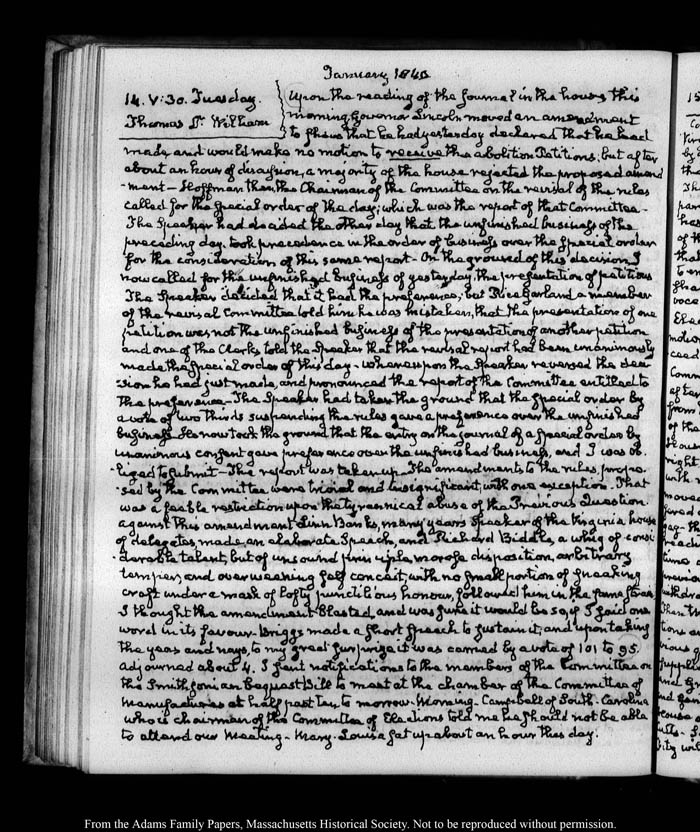 January 1840
14. V:30. Tuesday.
Thomas D. Wilham
Upon the reading of the Journal in the house this
morning Governor Lincoln moved an amendment
to shew that he had yesterday declared that he had
made, and would make no motion to receive the abolition Petitions; but after
about an hour of discussion, a majority of the house rejected the proposed amend
-ment - Hoffman then, the Chairman of the Committee on the revisal of the rules
called for the special order of the day; which was the report of that Committee -
The Speaker had decided the other day that the unfinished business of the
preceding day, took precedence in the order of business over the special order
for the consideration of this same report - On the ground of this decision, I
now called for the unfinished business of yesterday, the presentation of petitions
The Speaker decided that it had the preference; but Rice Garland a member
of the revisal Committee told him he was mistaken, that the presentation of one
petition was not the unfinished business of the presentation of another petition
and one of the Clerks told the Speaker that the revisal report had been unanimously
made the special order of this day - whereupon the Speaker reversed the deci
-sion he had just made, and pronounced the report of the Committee entitled to
the preference - The Speaker had taken the ground that the special order by
a vote of two thirds suspending the rules gave a preference over the unfinished
business. He now took the ground that the entry on the journal of a special order by
unanimous consent gave preference over the unfinished business, and I was ob-
-liged to submit - The report was taken up - The amendments to the rules, propo-
-sed by the Committee were trivial and insignificant, with one exception. That
was a feeble restriction upon the tyrannical abuse of the Previous Question
against this amendment Linn Banks, many years Speaker of the Virginia house
of delegates, made an elaborate Speech, and Richard Biddle, a whig of consi-
-derable talent, but of unsound principle, morose disposition, arbitrary
temper, and overweening self conceit, with no small portion of sneaking
craft under a mask of lofty punctilious honour, followed him in the same strain
I thought the amendment blasted, and was sure it would be so, if I said one
word in its favour. Briggs made a short speech to sustain it, and upon taking
the yeas and nays, to my great surprize it was carried by a vote of 101 to 95.
adjourned about 4. I sent notifications to the members of the Committee on
the Smithsonian bequest Bill to meet at the chamber of the Committee of
Manufactures at half past ten, to morrow - Morning - Campbell of South-Carolina
who is chairman of the Committee of Elections told me he should not be able
to attend our meeting - Mary-Louisa sat up about an hour this day.
From the Adams Family Papers, Massachusetts Historical Society. Not to be reproduced without permission.